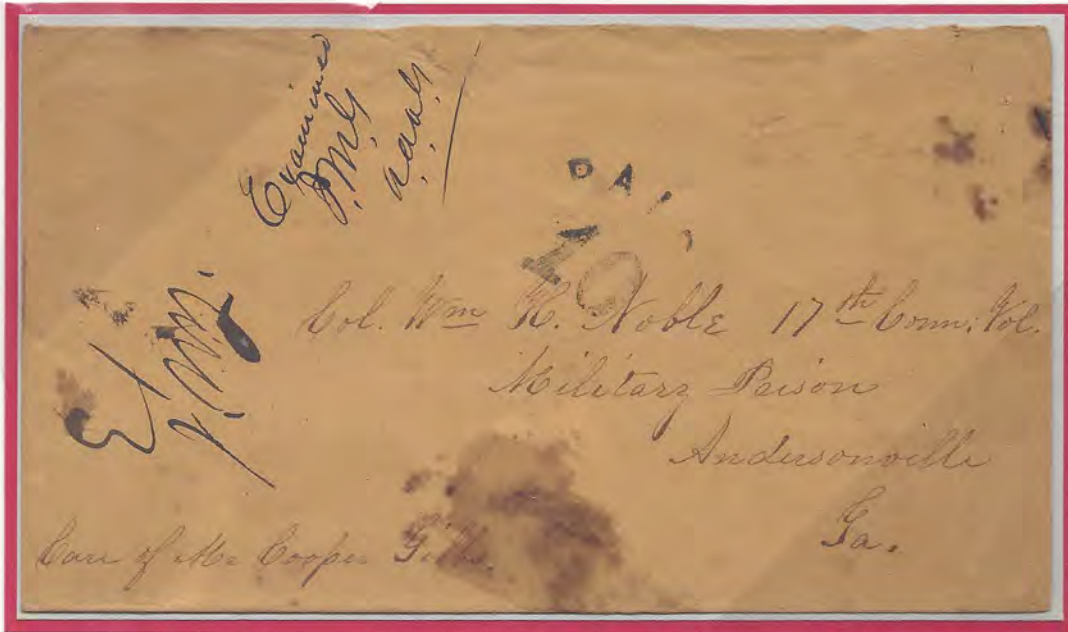 Examined
J.M.G
a.a.a.G
PAID
10
Ex
J.M.G.
Col. Wm H. Noble 17th Conn. Vol.
Military Prison
Andersonville
Ga.
Care of Mr Cooper Gibbs.